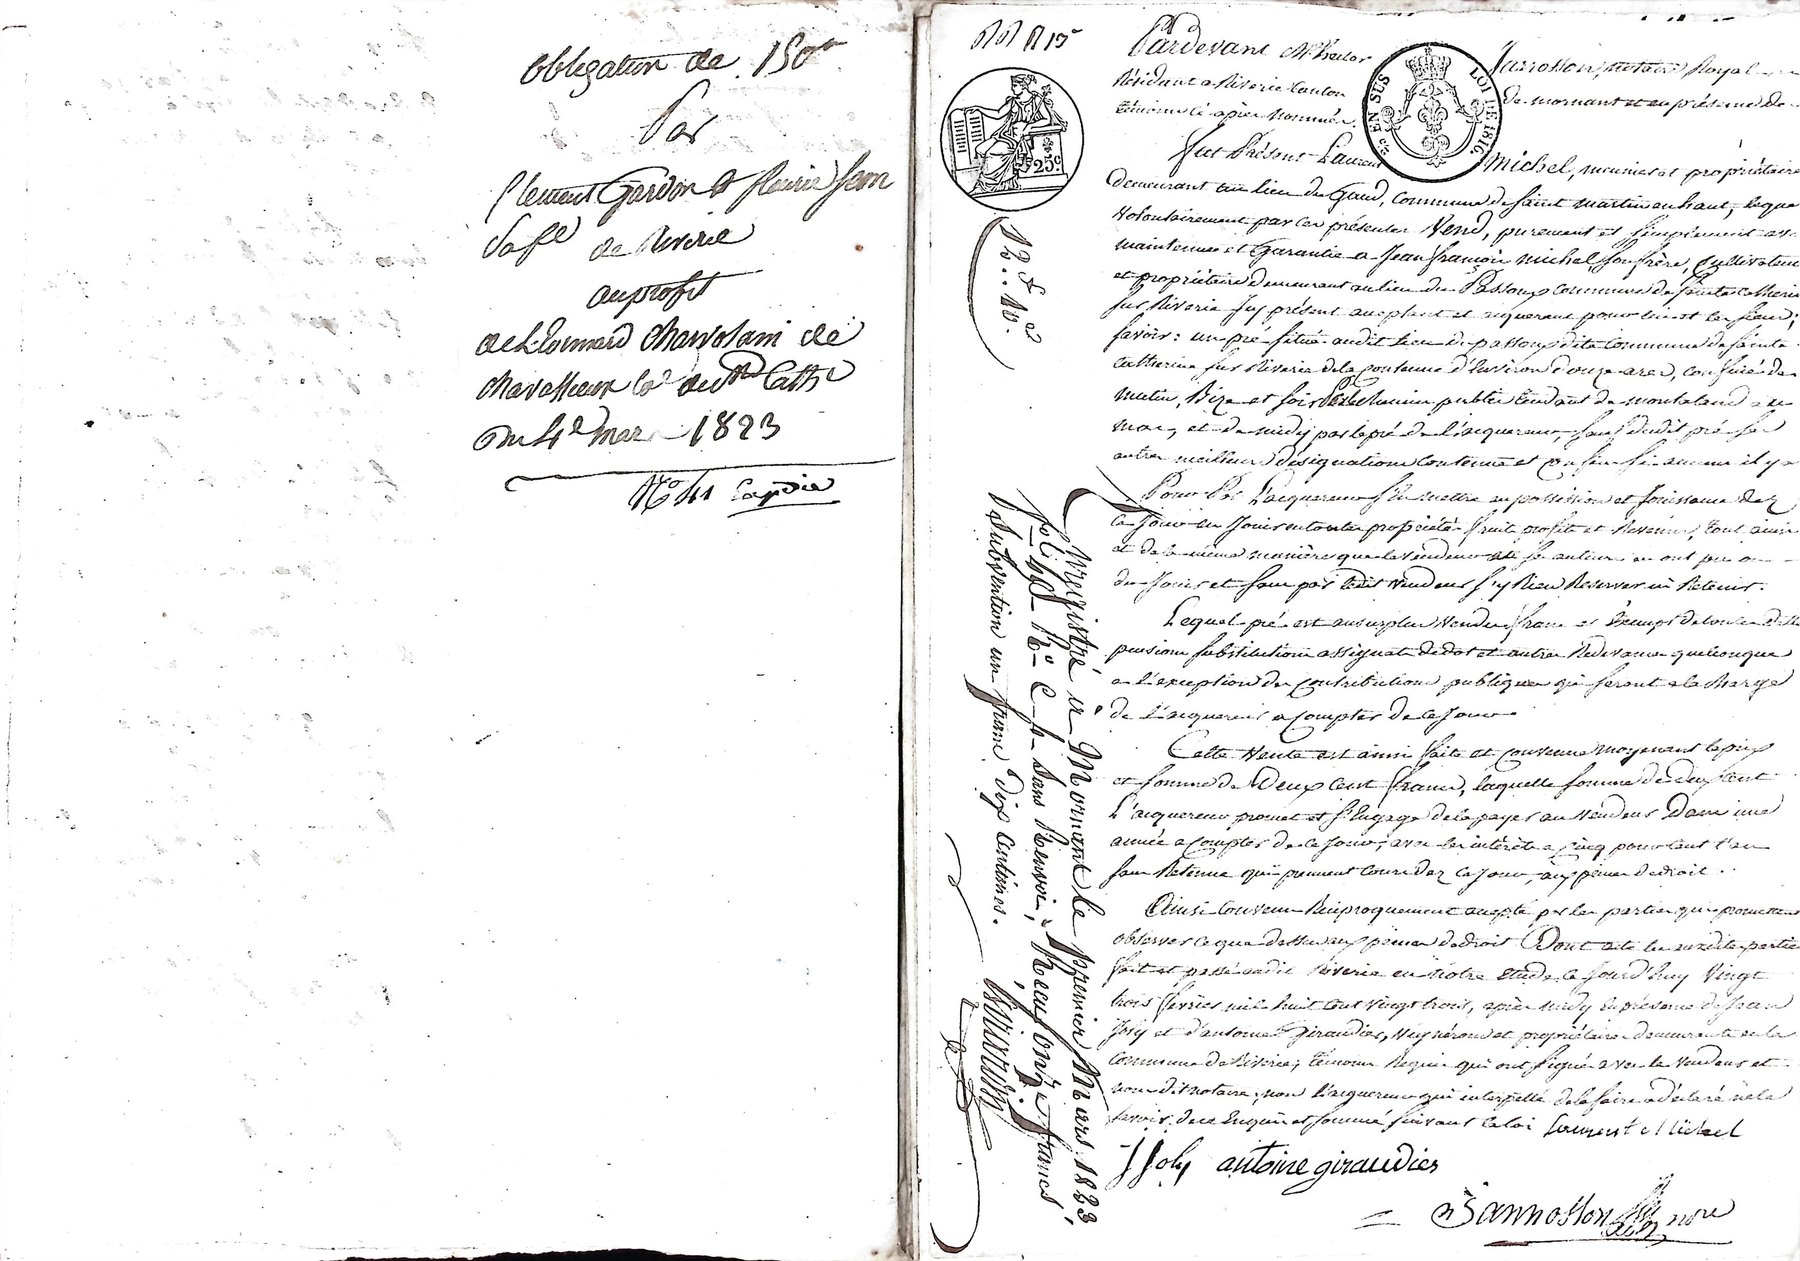 Obligation de 150
Par
Clement Gardon & fleurie
sa fe de Riverie
au profit
de Leonnard de
chavassieux
Du 4e mars 1823
No 41 Expdié
N N R 15
Pardevant Me Jannosson, notaire Royal
Résidant a Riverie Canton de mornant et en présence des
témoins ci-après Nommés.
EN SUS
LOI DE 1816
25c
12 f .. 10 ces
Fut Présent Laurent Michel, meunier et propriétaire
demeurant au lieu du Gaud, Commune de saint martin en haut, lequel
volontairement par ces présentes Vend, purement et simplement avec
maintenue et Garantie a Jean françois michel, son frère, Cultivateur
et propriétaire demeurant au lieu du Passoux commune de sainte catherine
sur Riverie Icy présent acceptant et acquerant pour lui et les siens;
savoir: un pré situé audit lieu du passoux dite commune de sainte
catherine sur Riverie de la contenue d'environ douze ares, confiné de
matin, Bize et soir par le chemin public tendant de
et de midy par le pré de l'acquereur, sauf dudit pré ses
autres meilleures désignations contenue et confins si aucuns il y a
Pour Par L'acquereur s'en mettre en possession et Jouissance dez
ce Jour en Jouir en toute propriété fruits profits et Revenus, tout ainsi
et de la même manière que le vendeur et ses auteurs en ont pu ou
du Jouir et sans par ledit vendeur s'y Rien Reserver ni Retenir.
Lequel pré est au surplus vendu franc et Exempt de toutes dettes
pensions substitutions assignats de dot et autres Redevances quelconques
a l'exception des contributions publiques qui seront a la charge
de L'acquereur a compter de ce Jour
Cette Vente est ainsi faite et convenue moyennant le prix
et somme de Deux cent francs, laquelle somme de deux cent
L'acquereur promet et s'Engage de la payer au vendeur Dans une
année a compter de ce Jour, avec les intérêts a cinq pour cent l'an
sans Retenue qui prennent cours dez ce Jour, aux peines de droit.
Ainsi convenu Réciproquement accepté par les parties qui promettent
observer ce que dessus aux peines de droit Dont acte les susdites parties
fait et passé audit Riverie en notre etude ce Jourd'huy Vingt
trois fevrier mil huit cent vingt trois, après midy En présence de Jean
Joly et d'antoine Giraudier, vigneron et propriétaire demeurants en la
commune de Riverie; témoins Requis qui ont signé avec le vendeur et
nous dit notaire, non l'acquereur qui interpellé de le faire a déclaré ne le
savoir, de ce Enquis et sommé suivant la loi Laurent Michel
J Joly antoine giraudier
Jannosson nore
Enregistré a Mornant le premier Mars 1823
fol. 40 Ro C 4. sans Renvoi; Reçu onze francs,
subvention un franc dix centimes.